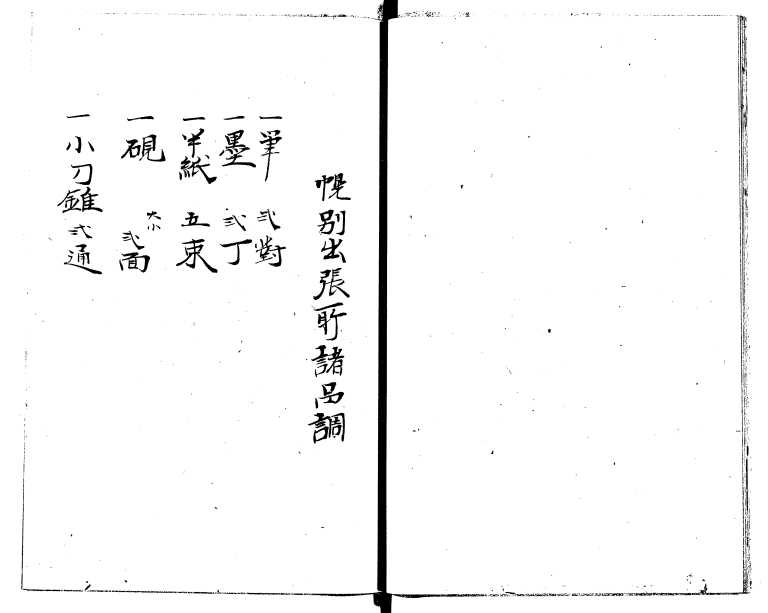 幌別出張所諸品調
一筆 弐對
一墨 弐丁
一半紙 五束
一硯 大小弐面
一小刀錐弐通